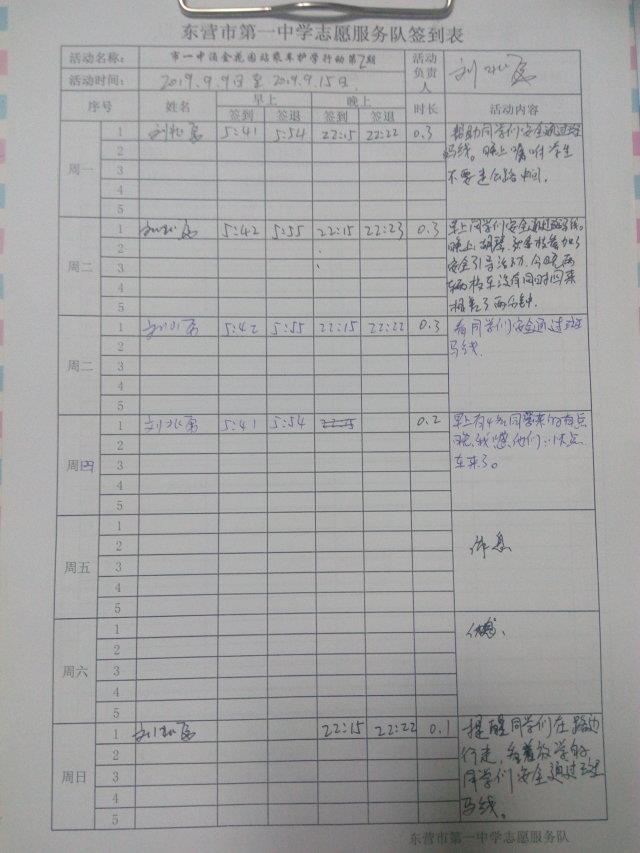 东营市第一中学志愿服务队签到表
活动名称: 市一中涌金花园站乘车护学行动第2期 活动负责人
活动时间: 2019.9.9日至2019.9.15日
序号 姓名 早上 晚上 时长 活动内容
签到 签退 签到 签退
周一 1 5:41 5:54 22:15 22:22 0.3 帮助同学们安全通过斑
2 马线。晚上嘱咐学生
3 不要走公路中间.
4
5
周二 1 5:42 5:55 22:15 22:23 0.3 早上同学们安全通过斑马线。
2 晚上
3 安全引导活动.
4 校车没有同时回来
5 相差了两分钟.
周二 1 5:42 5:55 22:15 22:22 0.3 看同学们安全通过斑
2 马线.
3
4
5
周四 1 5:41 5:54 22:15 0.2 早上有4名同学来的有点
2 晚,我 他们:快点
3 车来了。
4
5
周五 1
2 休息
3
4
5
周六 1
2
3
4
5
周日 1 22:15 22:22 0.1 提醒同学们在路边
2 行走,看着放学的
3 同学们安全通过斑
4 马线。
5
东营市第一中学志愿服务队